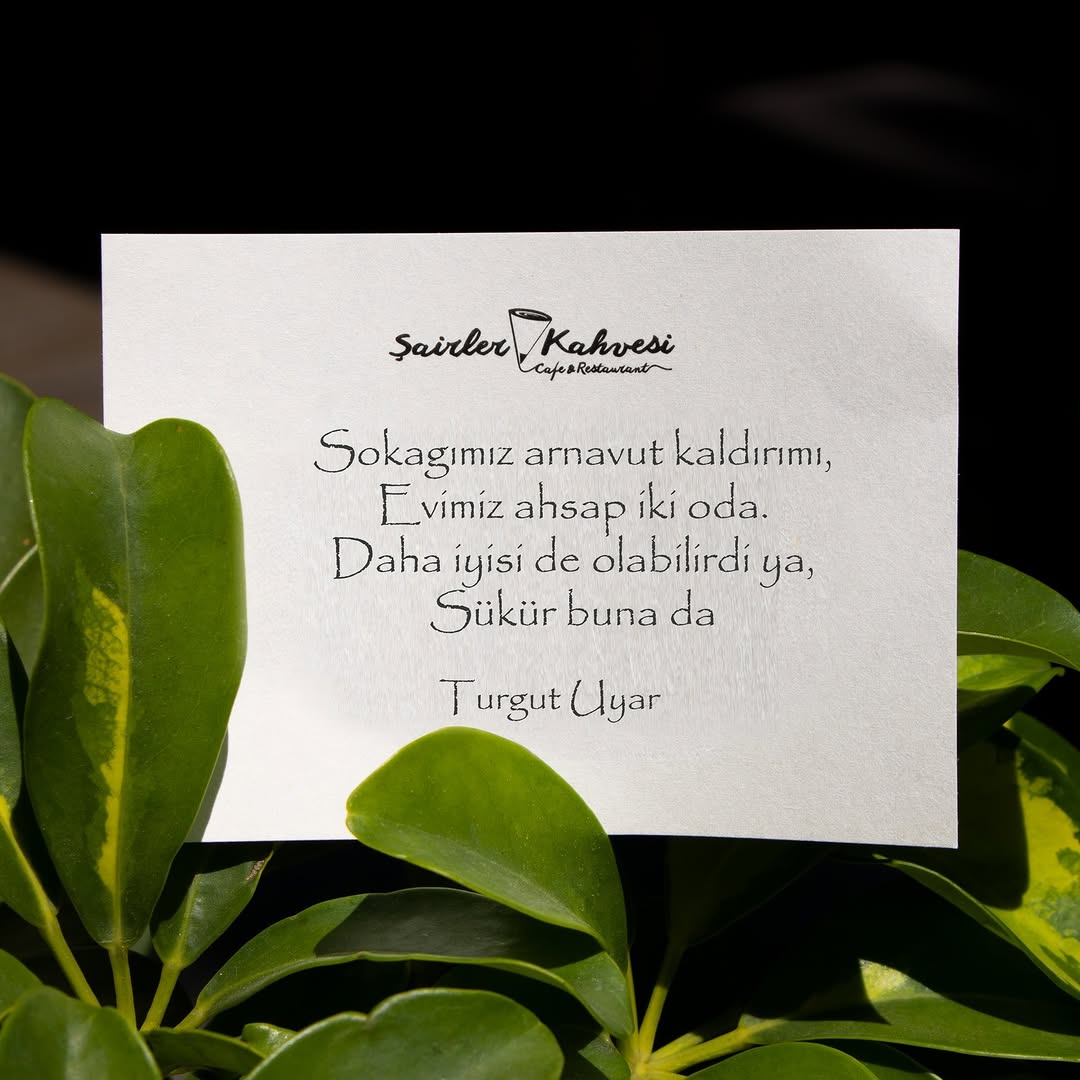 Şairler Kahvesi
Cafe & Restaurant
Sokagımız arnavut kaldırımı,
Evimiz ahsap iki oda.
Daha iyisi de olabilirdi ya,
Sükür buna da
Turgut Uyar